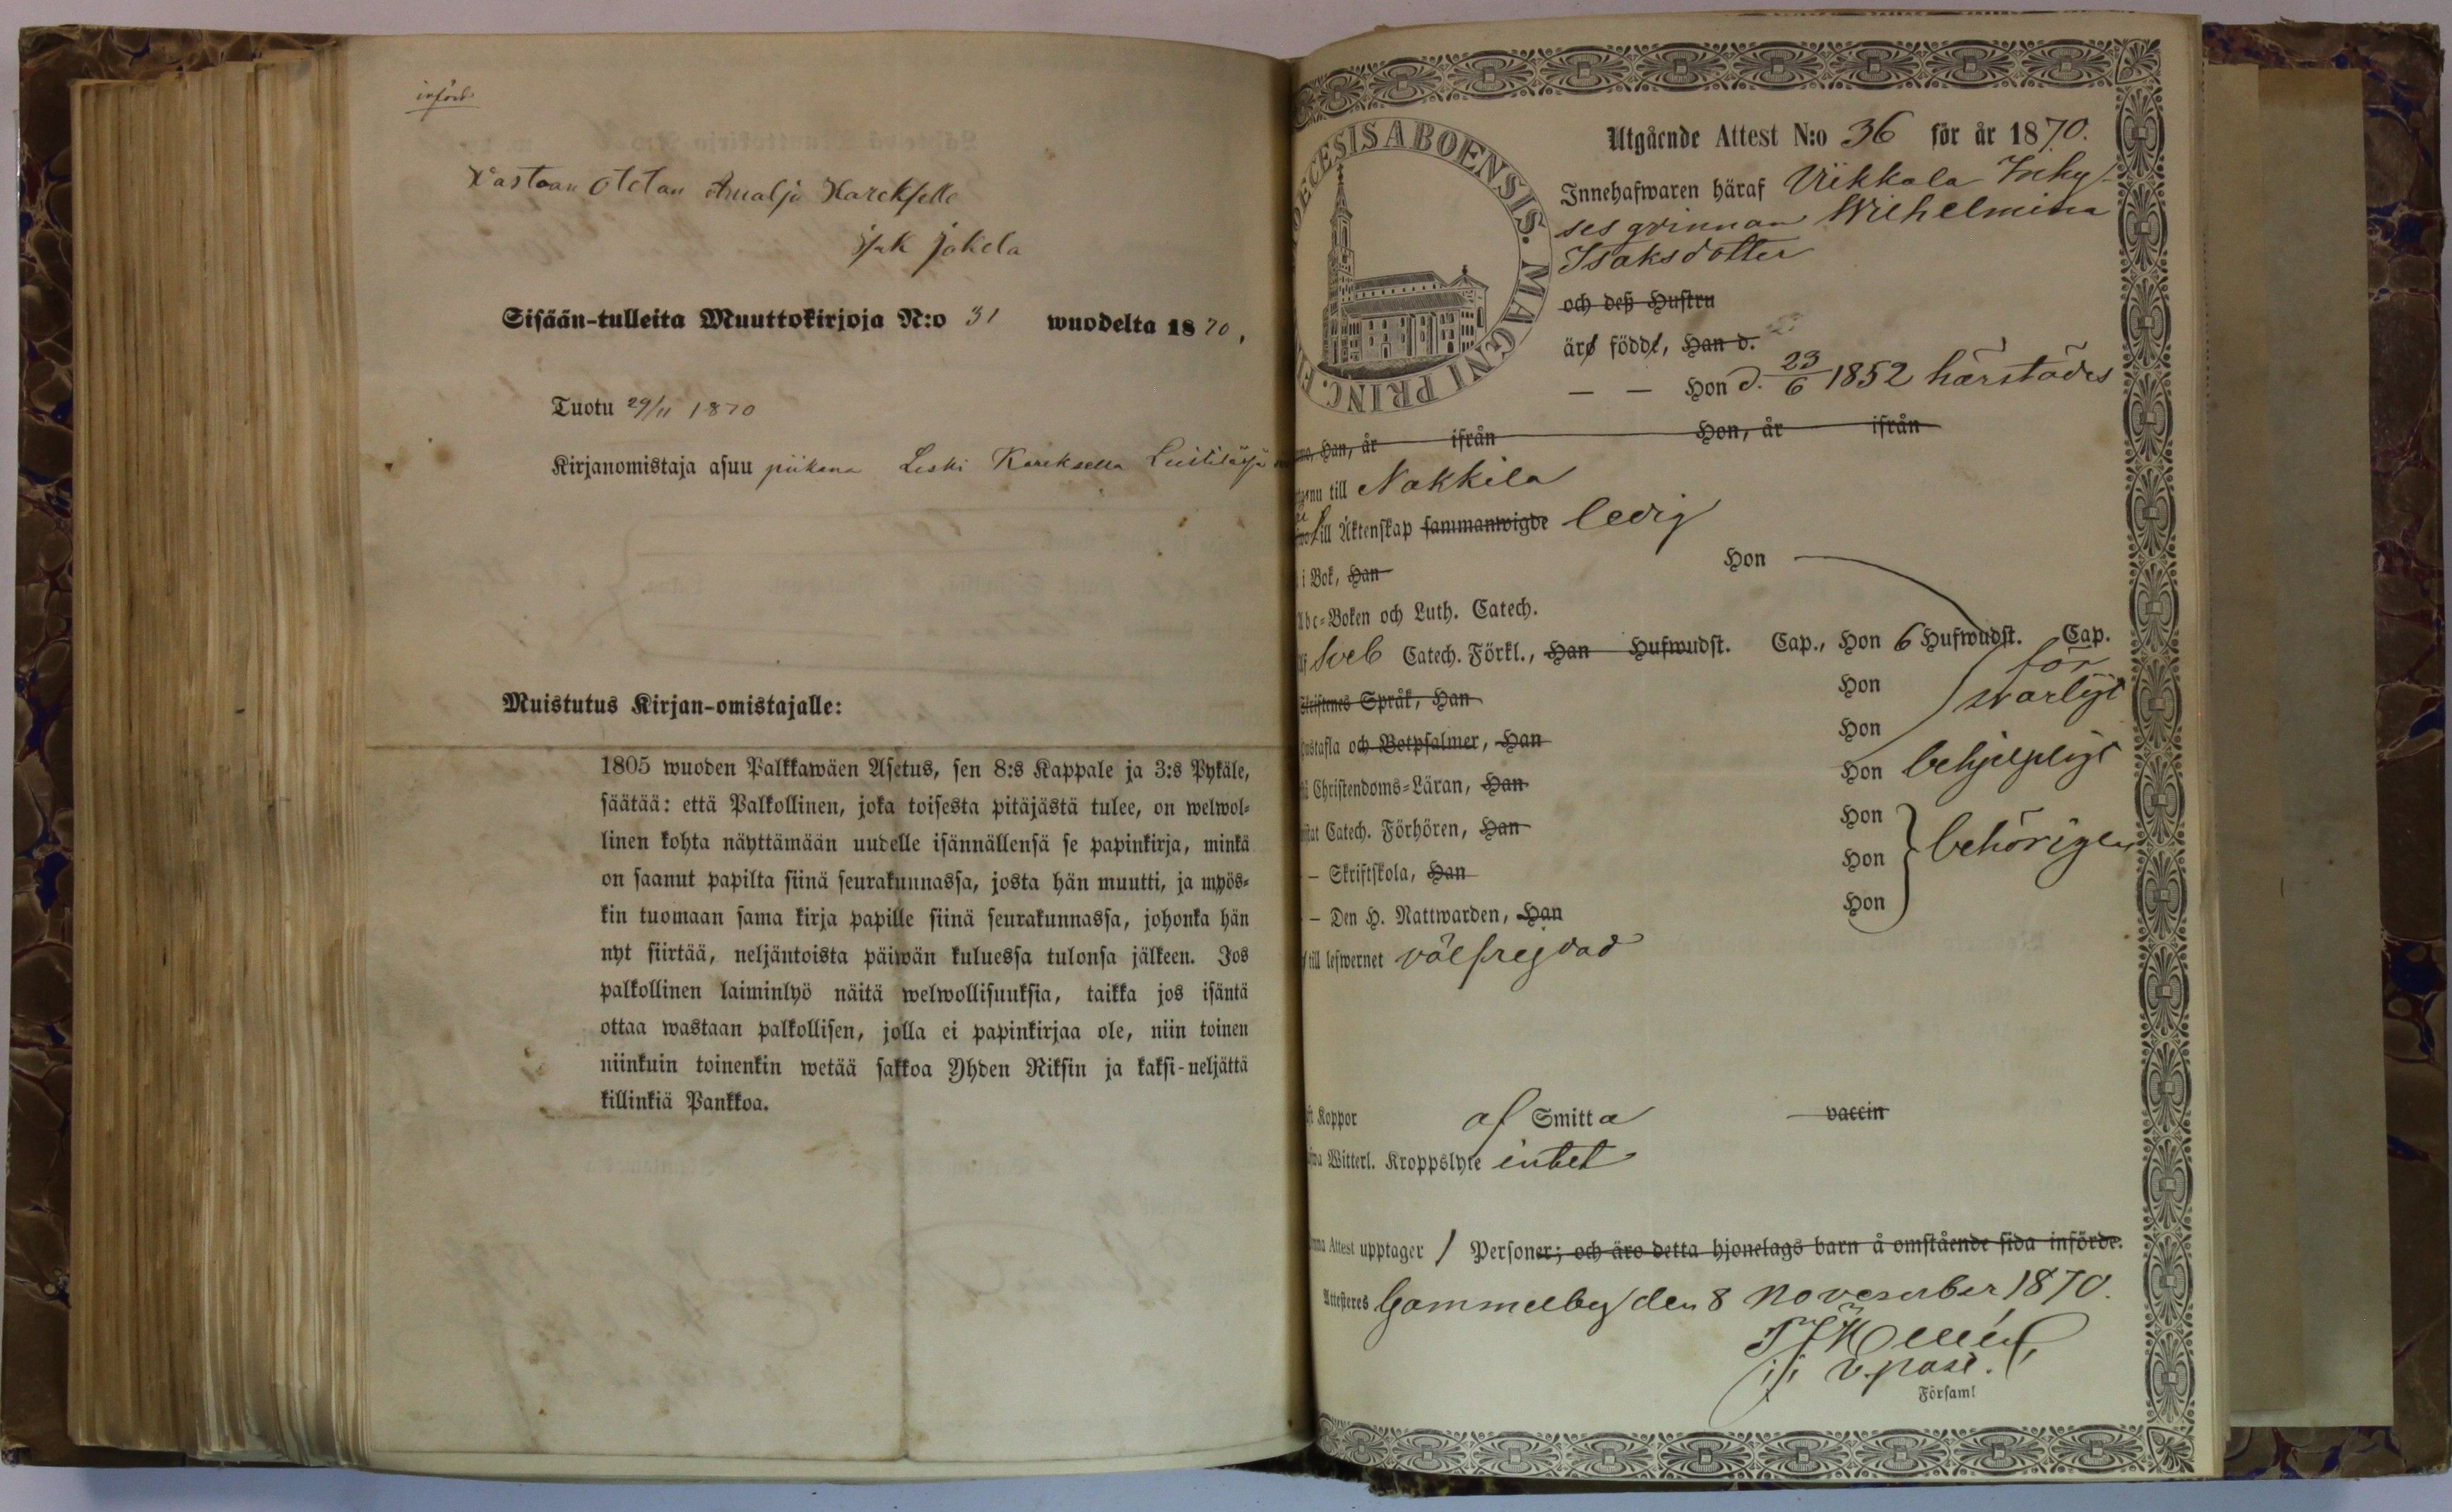 införd
Wastaan Otetan Amalja Karekselle
Jakela
Sisään-tulleita Muuttokirjoja N:o 31 wuodelta 1870,
Tuotu 29/11 1870
Kirjanomistaja asuu piikana Leski Kareksella
Muistutus Kirjan-omistajalle:
1805 wuoden Palkkawäen Asetus, sen 8:s Kappale ja 3:s Pykäle,
säätää: että Palkollinen, joka toisesta pitäjästä tulee, on welwol-
linen kohta näyttämään uudelle isännällensä se papinkirja, minkä
on saanut papilta siinä seurakunnassa, josta hän muutti, ja myös-
kin tuomaan sama kirja papille siinä seurakunnassa, johonka hän
nyt siirtää, neljäntoista päiwän kuluessa tulonsa jälkeen. Jos
palkollinen laiminlyö näitä welwollisuuksia, taikka jos isäntä
ottaa wastaan palkollisen, jolla ei papinkirjaa ole, niin toinen
niinkuin toinenkin wetää sakkoa Yhden Riksin ja kaksi-neljättä
killinkiä Pankkoa.
DIOECESIS ABOENSIS. MAGNI PRINC. F
Utgående Attest N:o 36 för år 1870.
Innehafwaren häraf Viikkala Inhy-
ses qvinnan Wilhelmina
Isaksdotter
och deß Hustru
äro födde, Han d.
— — Hon d. 23/6 1852 härstädes
Han, år ifrån Hon, år ifrån
till Nakkila
till Äktenskap sammanwigde ledig
i Bok, Han Hon
Abc-Boken och Luth. Catech.
Sveb Catech. Förkl., Han Hufwudst. Cap., Hon 6 Hufwudst. Cap.
för
Skriftenes Språk, Han Hon svarligt
och Botpsalmer, Han Hon
Christendoms-Läran, Han Hon behjelpligt
Catech. Förhören, Han Hon
— Skriftskola, Han Hon behörigen
— Den H. Nattwarden, Han Hon
till lefwernet välfrejdad
Koppor af Smitta vaccin
Witterl. Kroppslyte intet
Attest upptager 1 Personer; och äro detta hjonelags barn å omstående sida införde.
Attesteres Gammelby den 8 November 1870.
v. past.
Församl